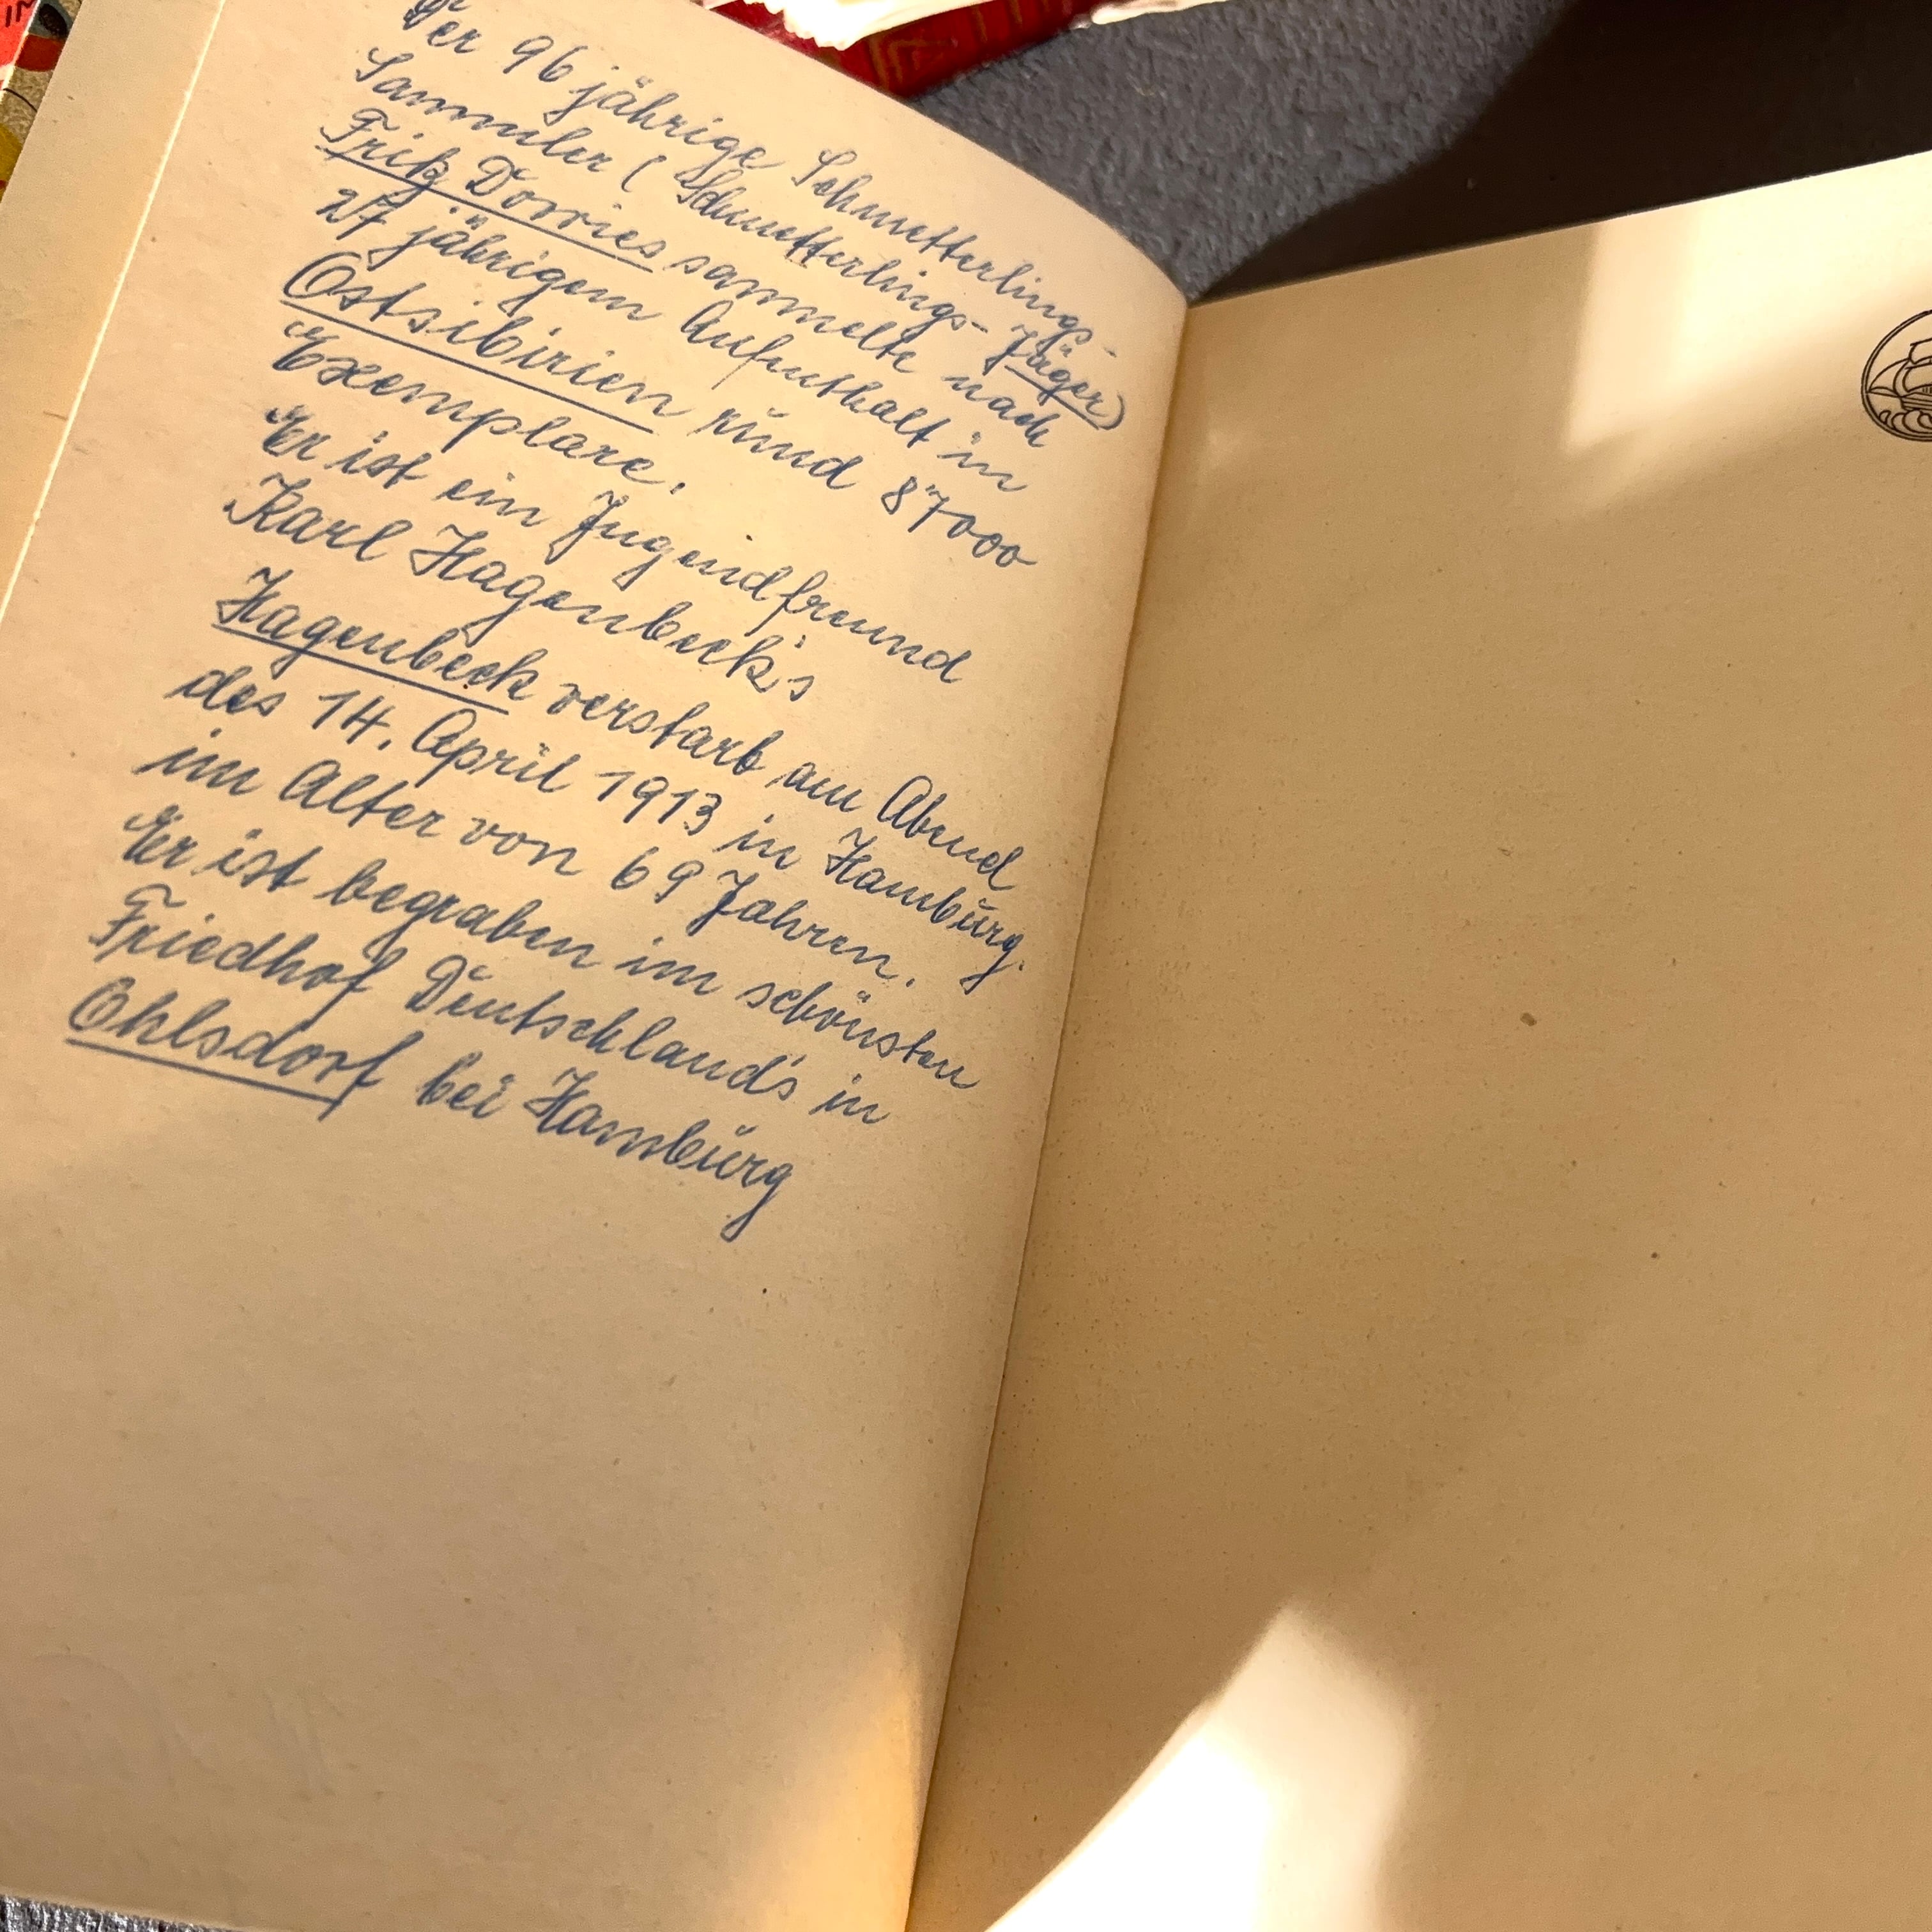 Der 96 jährige Schmetterlings-
Sammler (Schmetterlings-Jäger)
Fritz Dörries sammelte nach
27 jährigem Aufenthalt in
Ostsibirien rund 87000
Exemplare.
Er ist ein Jugendfreund
Karl Hagenbeck's
Hagenbeck verstarb am Abend
des 14. April 1913 in Hamburg.
im Alter von 69 Jahren.
Er ist begraben im schönsten
Friedhof Deutschland's in
Ohlsdorf bei Hamburg